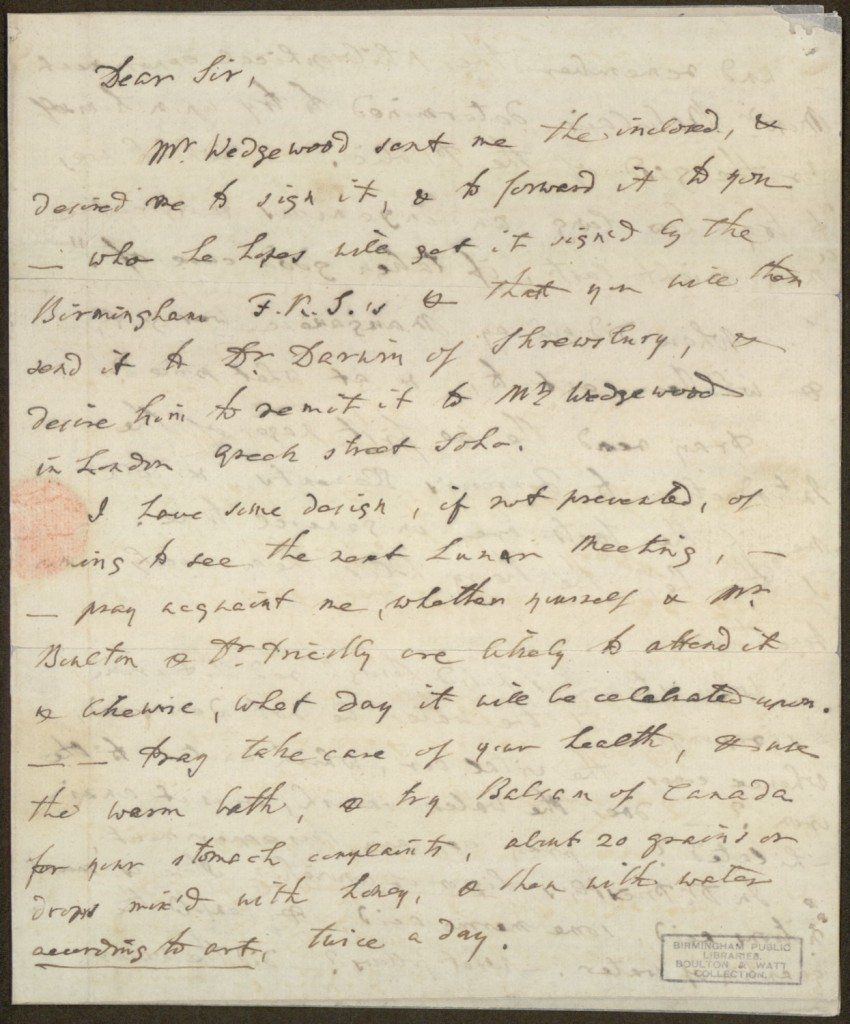 Dear Sir,
Mr Wedgewood sent me the inclosed, &
desired me to sign it, & to forward it to you
— who he hopes will get it signed by the
Birmingham F.R.S.'s & that you will then
send it to Dr. Darwin of Shrewsbury, &
desire him to remit it to Mr Wedgewood
in London Greek street Soho.
I have some design, if not prevented, of
coming to see the next Lunar Meeting, —
— pray acquaint me, whether yourself & Mr.
Boulton & Dr. Priestly are likely to attend it
& likewise, what day it will be celebrated upon.
— — pray take care of your health, & use
the warm bath, & try Balsam of Canada
for your stomach complaints, about 20 grains or
drops mix'd with honey, & then with water
according to art, twice a day.
BIRMINGHAM PUBLIC
LIBRARIES.
BOULTON & WATT
COLLECTION.